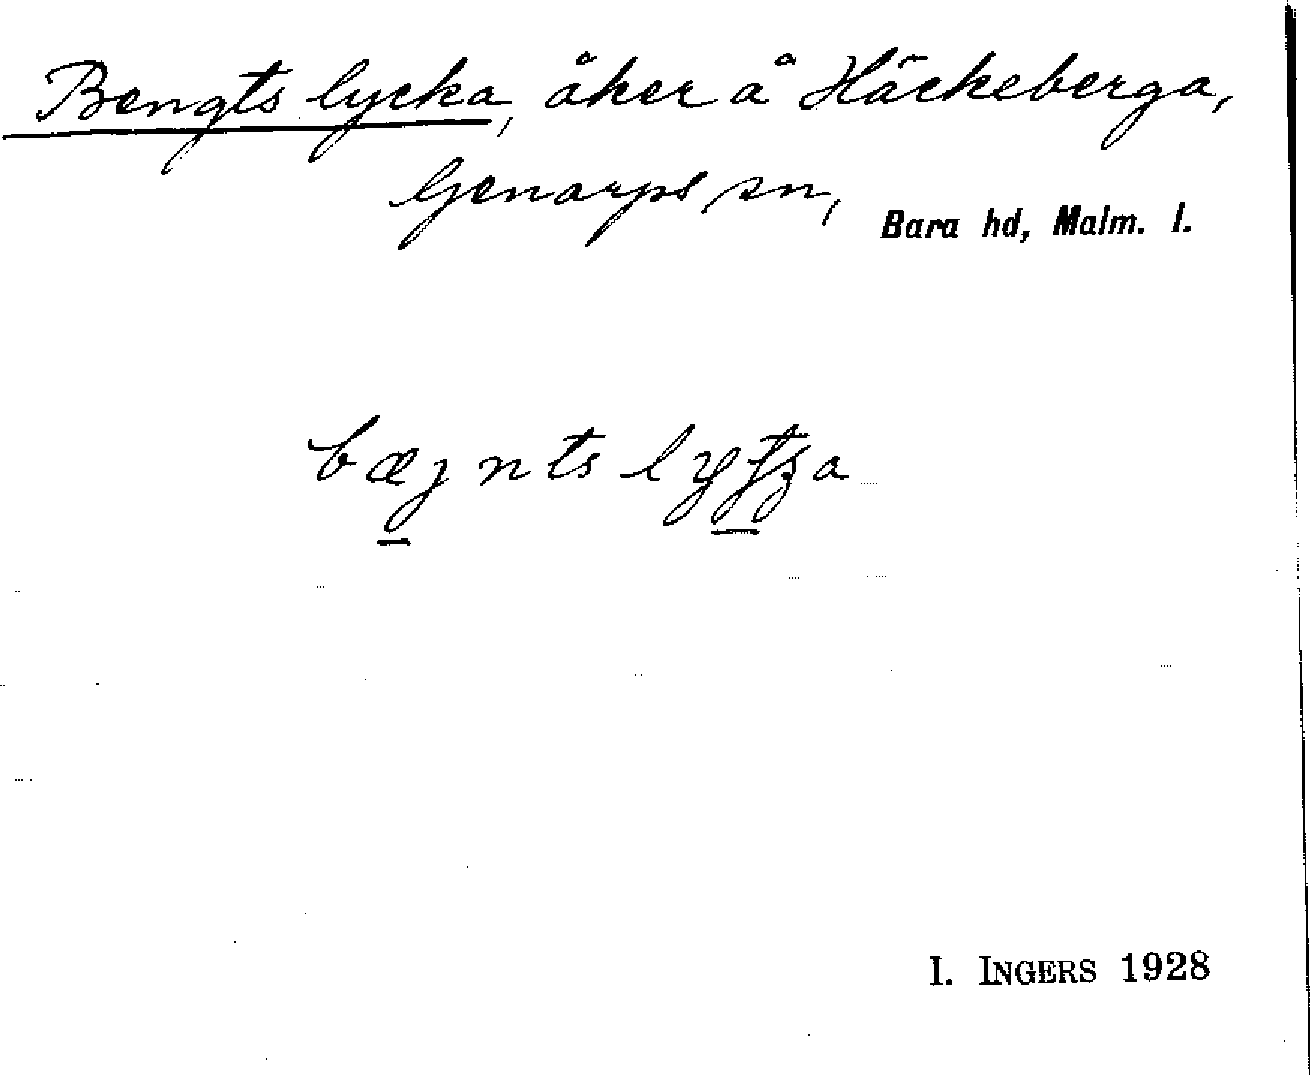 Bengts lycka, åker å Häckeberga,
Genarps sn, Bara hd, Malm. l.
bæjnts lytȝa
I. INGERS 1928